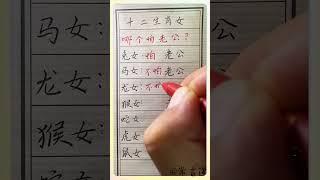 十二生肖女
哪个怕老公?
兔女:怕老公
马女:不怕老公
龙女:不
猴女
蛇女
虎女
鼠女
马女
龙女
猴女